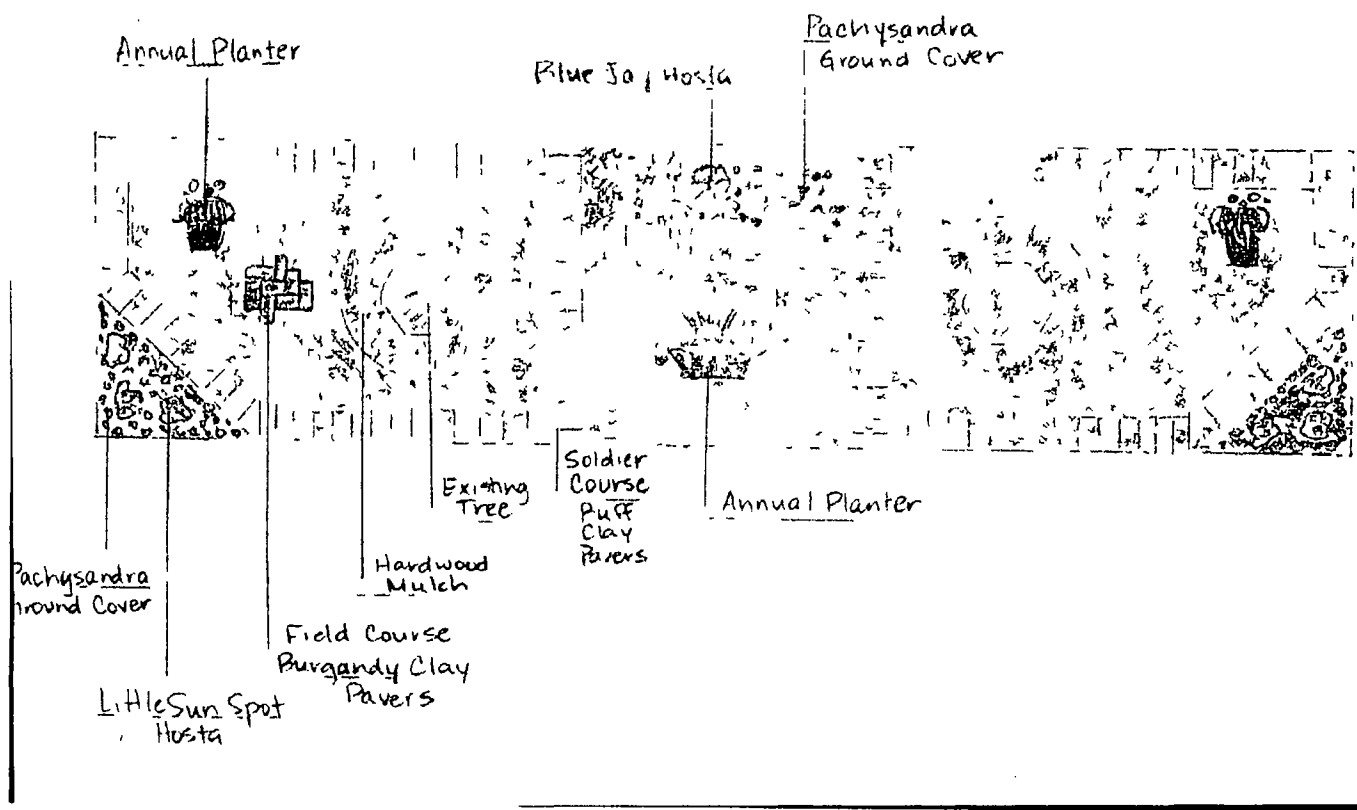 Annual Planter
Blue Jay Hosta
Pachysandra
Ground Cover
Existing
Tree
Soldier
Course
Buff
Clay
Pavers
Annual Planter
Hardwood
Mulch
Pachysandra
Ground Cover
Field Course
Burgandy Clay
Pavers
Little Sun Spot
Hosta